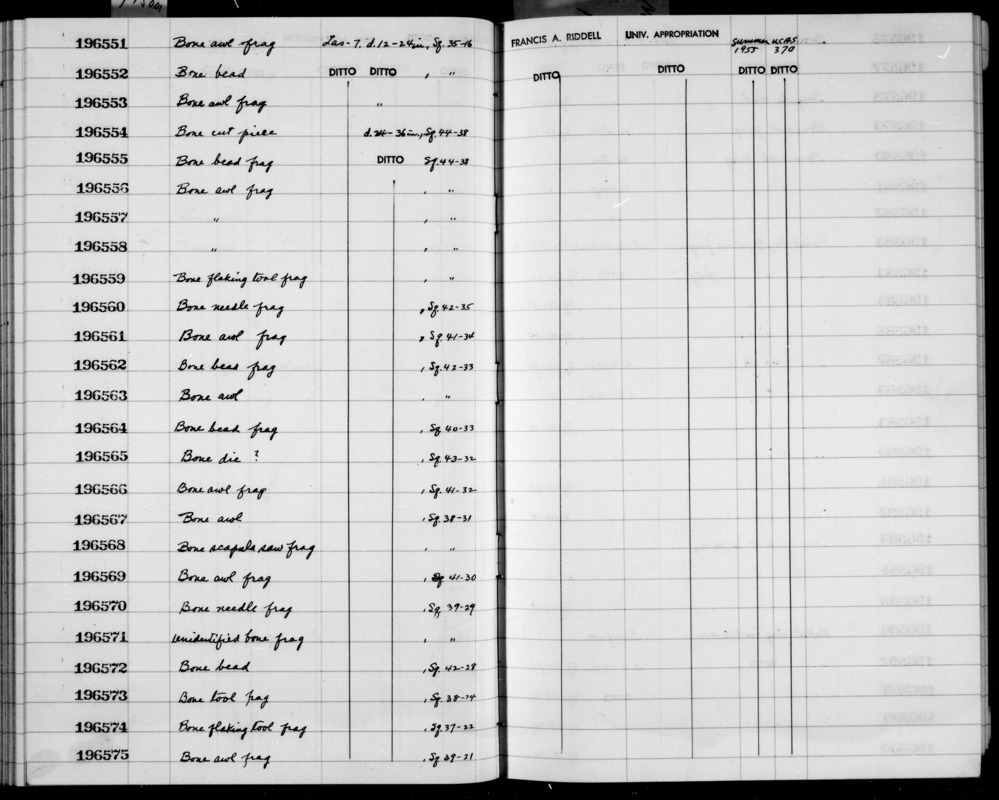 196551 Bone awl frag Las-7, d.12-24in., Sq. 35-16 FRANCIS A. RIDDELL UNIV. APPROPRIATION Summer 1955 UCAS 370
196552 Bone bead DITTO DITTO , " DITTO DITTO DITTO DITTO
196553 Bone awl frag "
196554 Bone cut piece d.24-36in., Sq. 44-38
196555 Bone bead frag DITTO Sq. 44-38
196556 Bone awl frag , "
196557 " , "
196558 " , "
196559 Bone flaking tool frag , "
196560 Bone needle frag , Sq. 42-35
196561 Bone awl frag , Sq. 41-34
196562 Bone bead frag , Sq. 42-33
196563 Bone awl , "
196564 Bone bead frag , Sq. 40-33
196565 Bone die ? , Sq. 43-32
196566 Bone awl frag , Sq. 41-32
196567 Bone awl , Sq. 38-31
196568 Bone scapula saw frag , "
196569 Bone awl frag , Sq. 41-30
196570 Bone needle frag , Sq. 39-29
196571 Unidentified bone frag , "
196572 Bone bead , Sq. 42-28
196573 Bone tool frag , Sq. 38-24
196574 Bone flaking tool frag , Sq. 37-22
196575 Bone awl frag , Sq. 39-21